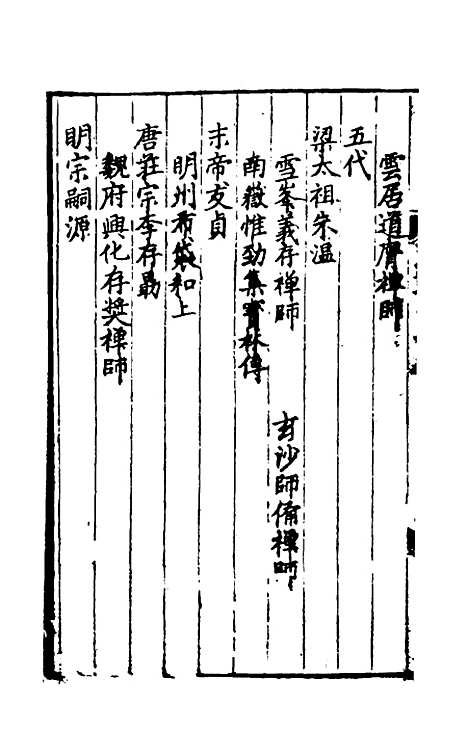 雲居道膺禪師
五代
梁太祖朱温
雪峯義存禪師　玄沙師俻禪師
南嶽惟勁集寳林傳
末帝友貞
明州布袋和上
唐莊宗李存勗
魏府興化存奬禪師
明宗嗣源